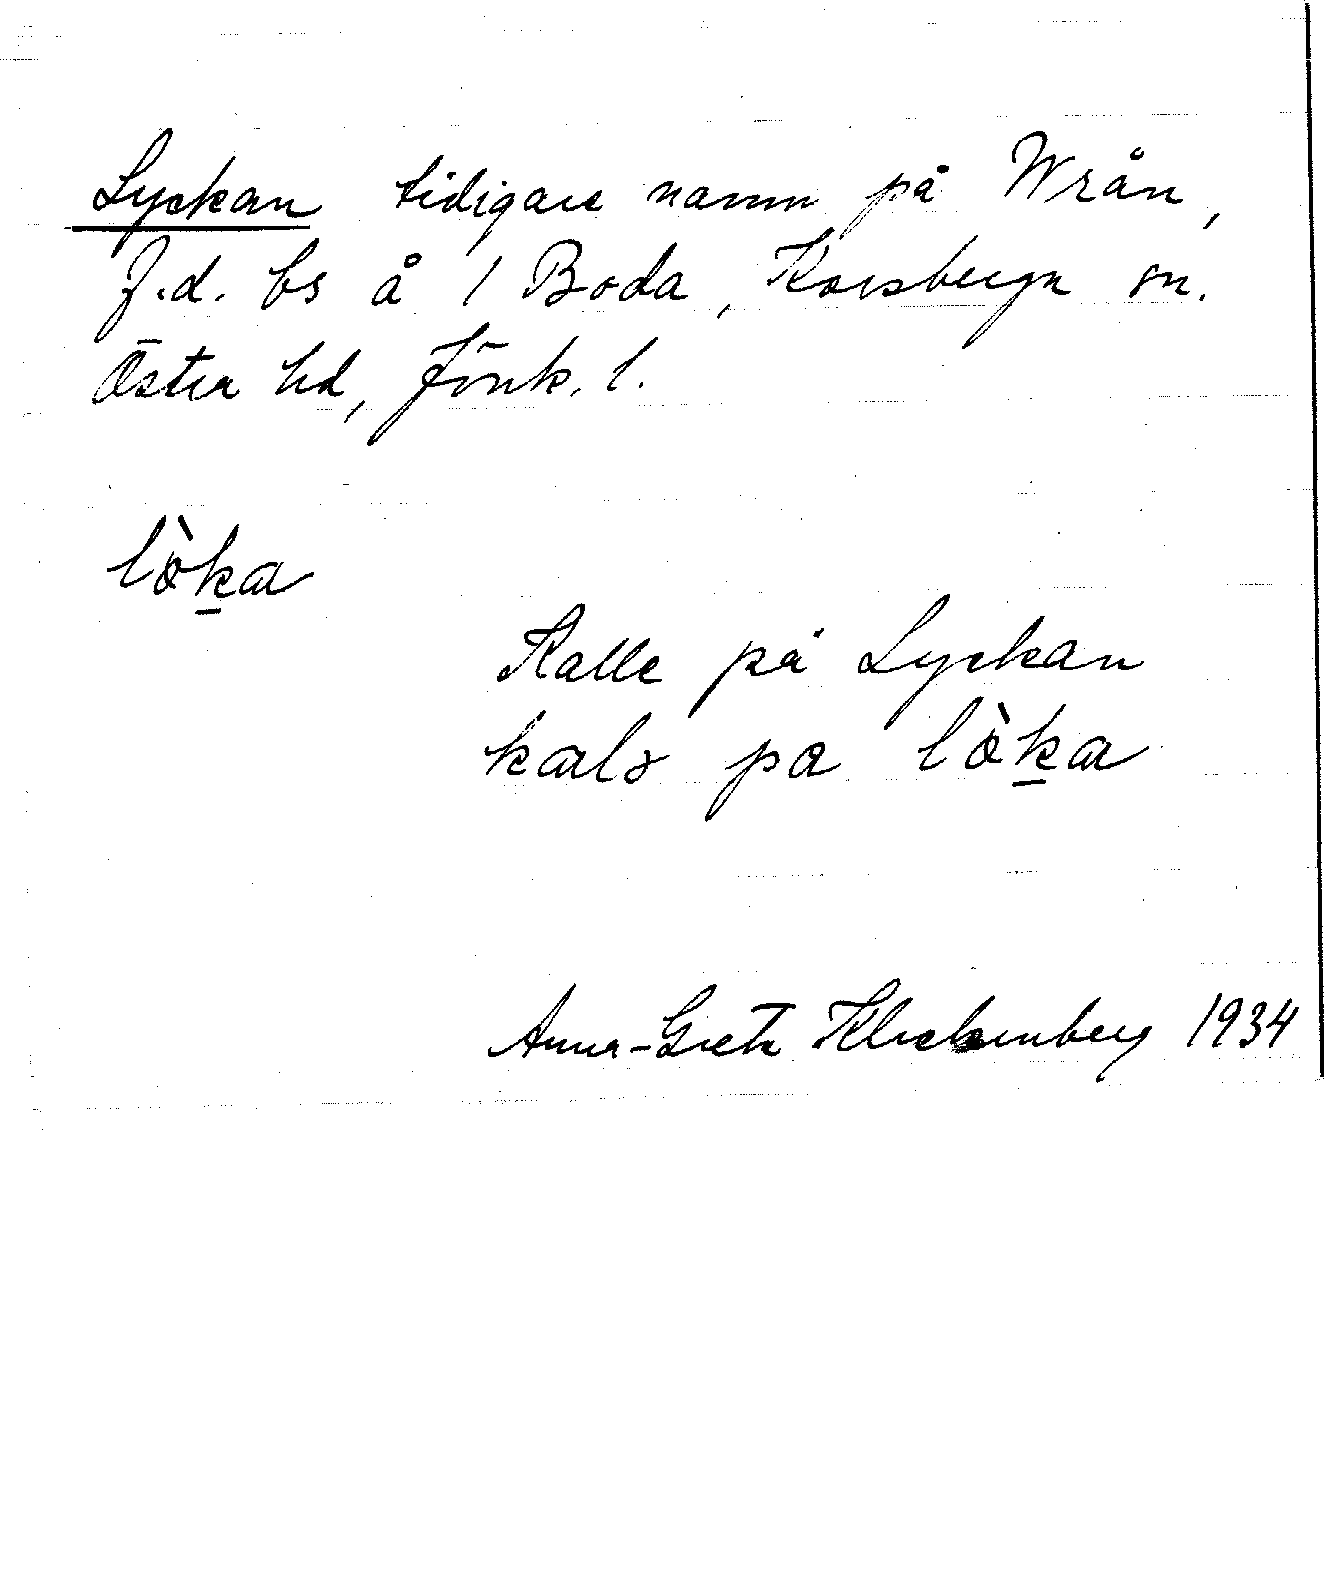 Lyckan tidigare namn på Wrån,
f.d. bs å 1 Boda, Korsberga sn.
Östra hd, Jönk. l.
lòka
Kalle på Lyckan
kalə pa lòka
Anna-Greta Klackenberg 1934